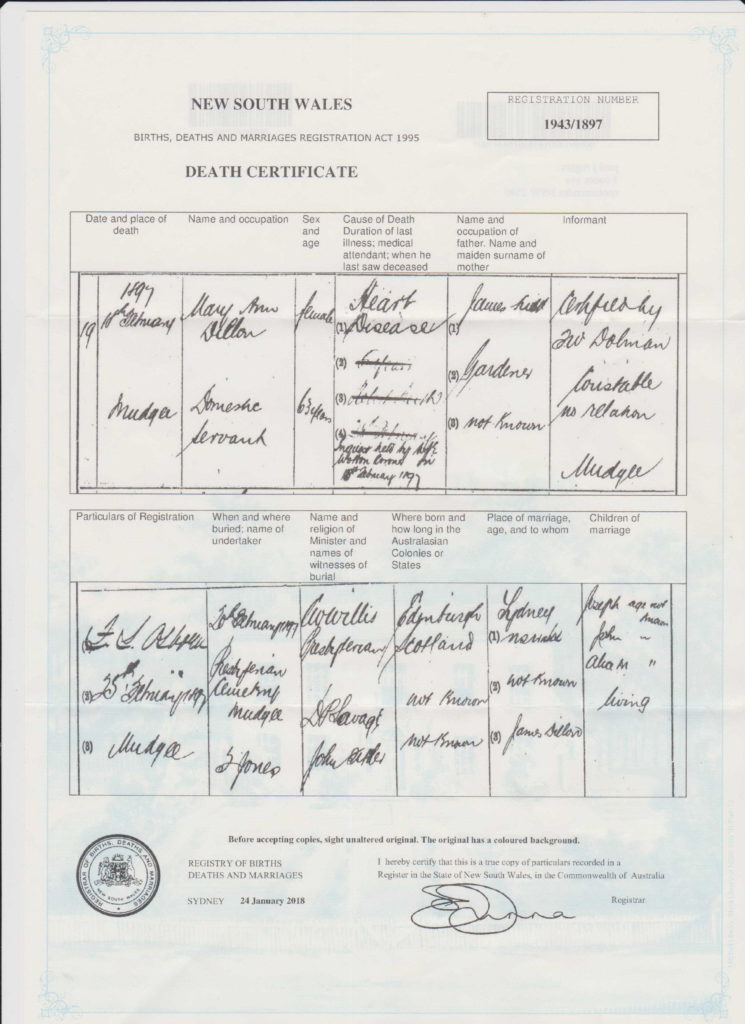 NEW SOUTH WALES
REGISTRATION NUMBER
1943/1897
BIRTHS, DEATHS AND MARRIAGES REGISTRATION ACT 1995
DEATH CERTIFICATE
Date and place of death
Name and occupation
Sex and age
Cause of Death Duration of last illness; medical attendant; when he last saw deceased
Name and occupation of father. Name and maiden surname of mother
Informant
19
1897
18th February
Mudgee
Mary Ann
Dillon
Domestic
Servant
female
63 years
Heart
(1) Disease
(2)
(3)
(4)
Inquest held by
Coroner on
18th February 1897
James Kidd
(1)
(2) Gardener
(3) not Known
Certified by
Dolman
Constable
no relation
Mudgee
Particulars of Registration
When and where buried; name of undertaker
Name and religion of Minister and names of witnesses of burial
Where born and how long in the Australasian Colonies or States
Place of marriage, age, and to whom
Children of marriage
(2) 25th February 1897
(3) Mudgee
20th February 1897
Presbyterian
Cemetery
Mudgee
Jones
Willis
Presbyterian
Savage
John
Edinburgh
Scotland
not Known
not Known
Sydney
(1)
(2) not Known
(3) James Dillon
Joseph age not
John "
"
living
Before accepting copies, sight unaltered original. The original has a coloured background.
REGISTRAR OF BIRTHS, DEATHS AND MARRIAGES
NEW SOUTH WALES
REGISTRY OF BIRTHS
DEATHS AND MARRIAGES
SYDNEY 24 January 2018
I hereby certify that this is a true copy of particulars recorded in a
Register in the State of New South Wales, in the Commonwealth of Australia
Registrar